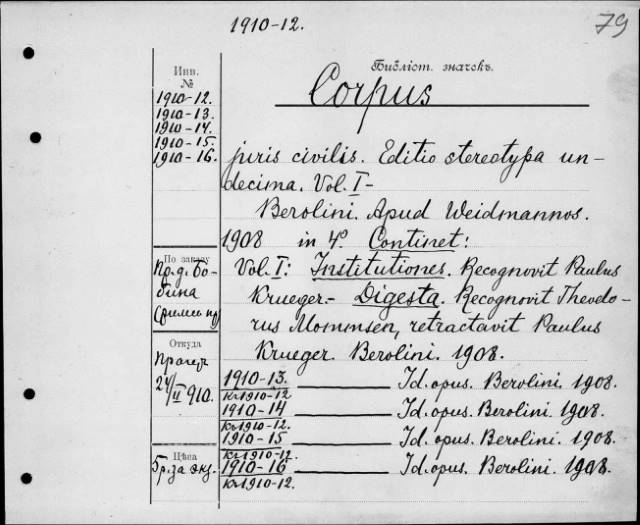 1910-12.
79
Инв.
№
Библіот. значокъ.
1910-12.
1910-13.
1910-14.
1910-15.
1910-16.
Corpus
juris civilis. Editio stereotypa un-
decima. Vol. I-
Berolini. Apud Weidmannos.
1908 in 4º. Continet:
По заказу
Пр. д. Бо-
бина
Vol. I: Institutiones. Recognovit Paulus
Krueger.- Digesta. Recognovit Theodo-
rus Mommsen, retractavit Paulus
Krueger. Berolini. 1908.
Откуда
Прагеръ
24/II 910.
1910-13. Id. opus. Berolini. 1908.
Кг1910-12
1910-14 Id. opus. Berolini. 1908.
Кг1910-12.
1910-15 Id. opus. Berolini. 1908.
Цѣна
5 р. за экз.
Кг1910-12.
1910-16 Id. opus. Berolini. 1908.
Кг1910-12.